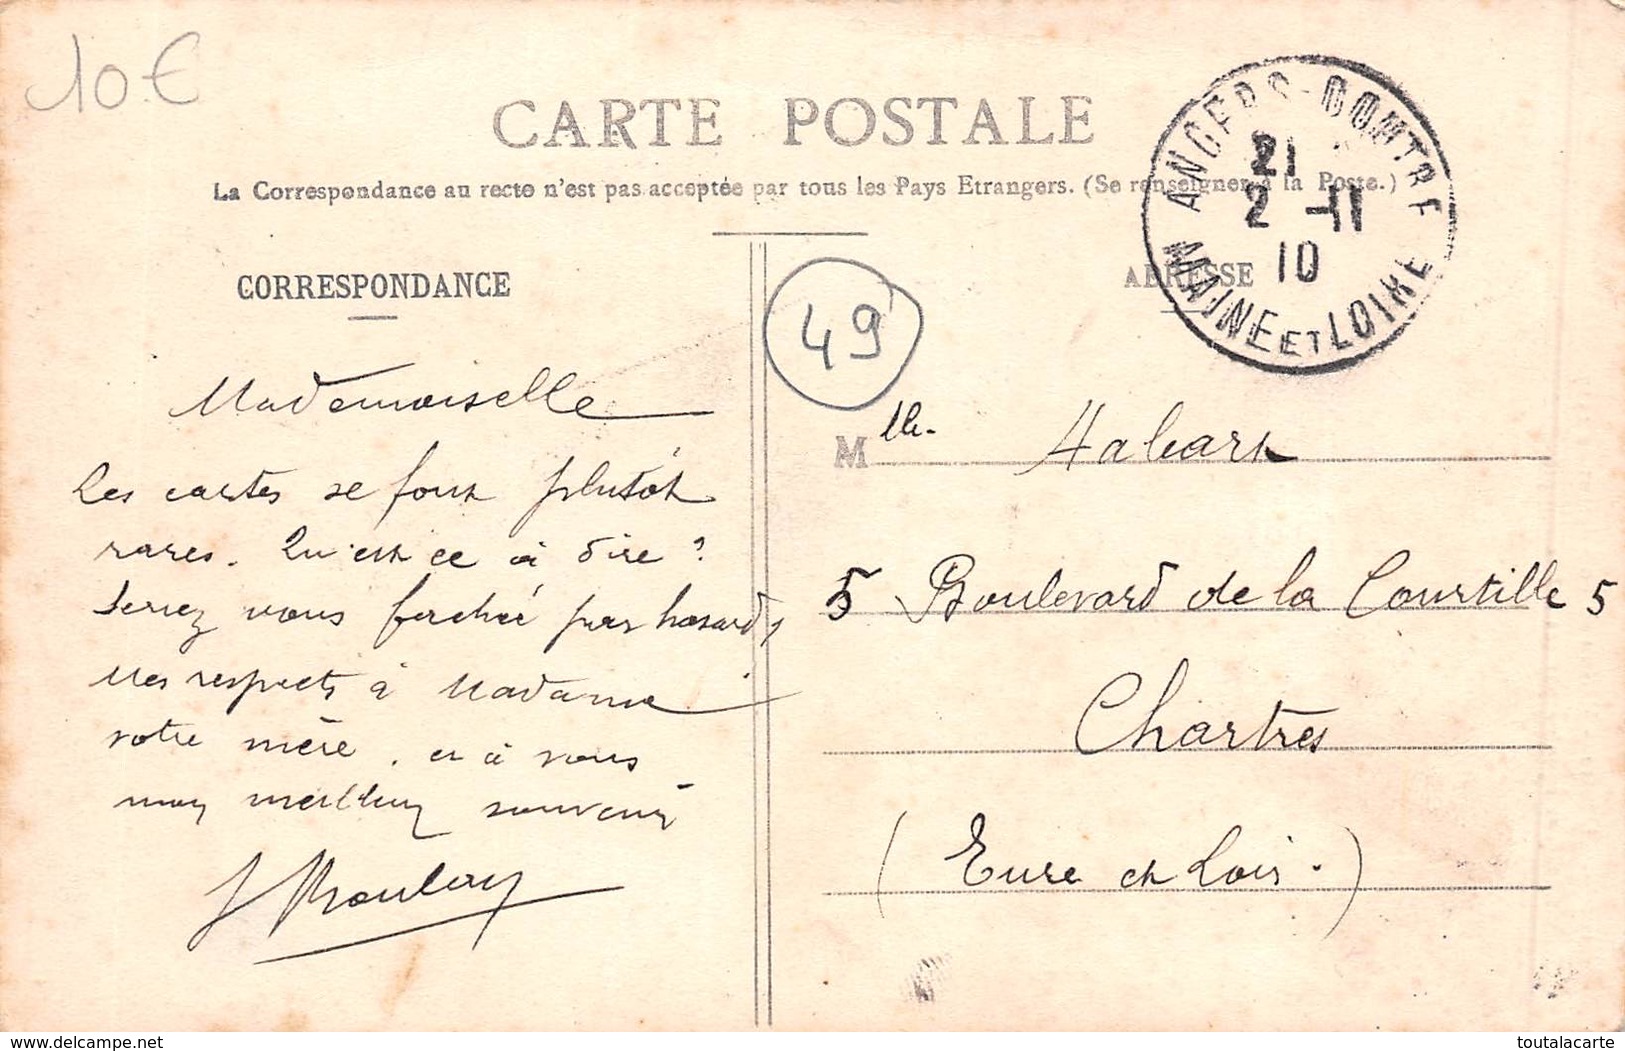 10€
CARTE POSTALE
La Correspondance au recto n'est pas acceptée par tous les Pays Etrangers. (Se renseigner à la Poste.)
ANGERS-CONTRE
21
2 -11
10
MAINE ET LOIRE
CORRESPONDANCE
ADRESSE
49
Mademoiselle
Les cartes se font plutôt
rares. Qu'est ce à dire ?
Seriez vous fachée par hasard,
Mes respects à Madame
votre mère. et à vous
mon meilleur souvenir
Mlle.
5 Boulevard de la Courtille 5
Chartres
(Eure et Loir.)
www.delcampe.net
toutalacarte